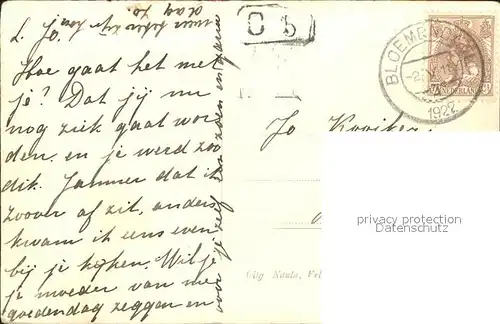 L. Jo.
Hoe gaat het met
je? Dat jij nu
nog ziek gaat wor
den. en je werd zoo
dik. Jammer dat ik
zoover af zit, anders
kwam ik eens even
bij je kijken. Wil je
je moeder van me
goedendag zeggen en
voor je zelf een zoen
C b
BLOEMENDAAL
1922
NEDERLAND
Jo Kooiker
Uitg Nauta, Vel
privacy protection
Datenschutz